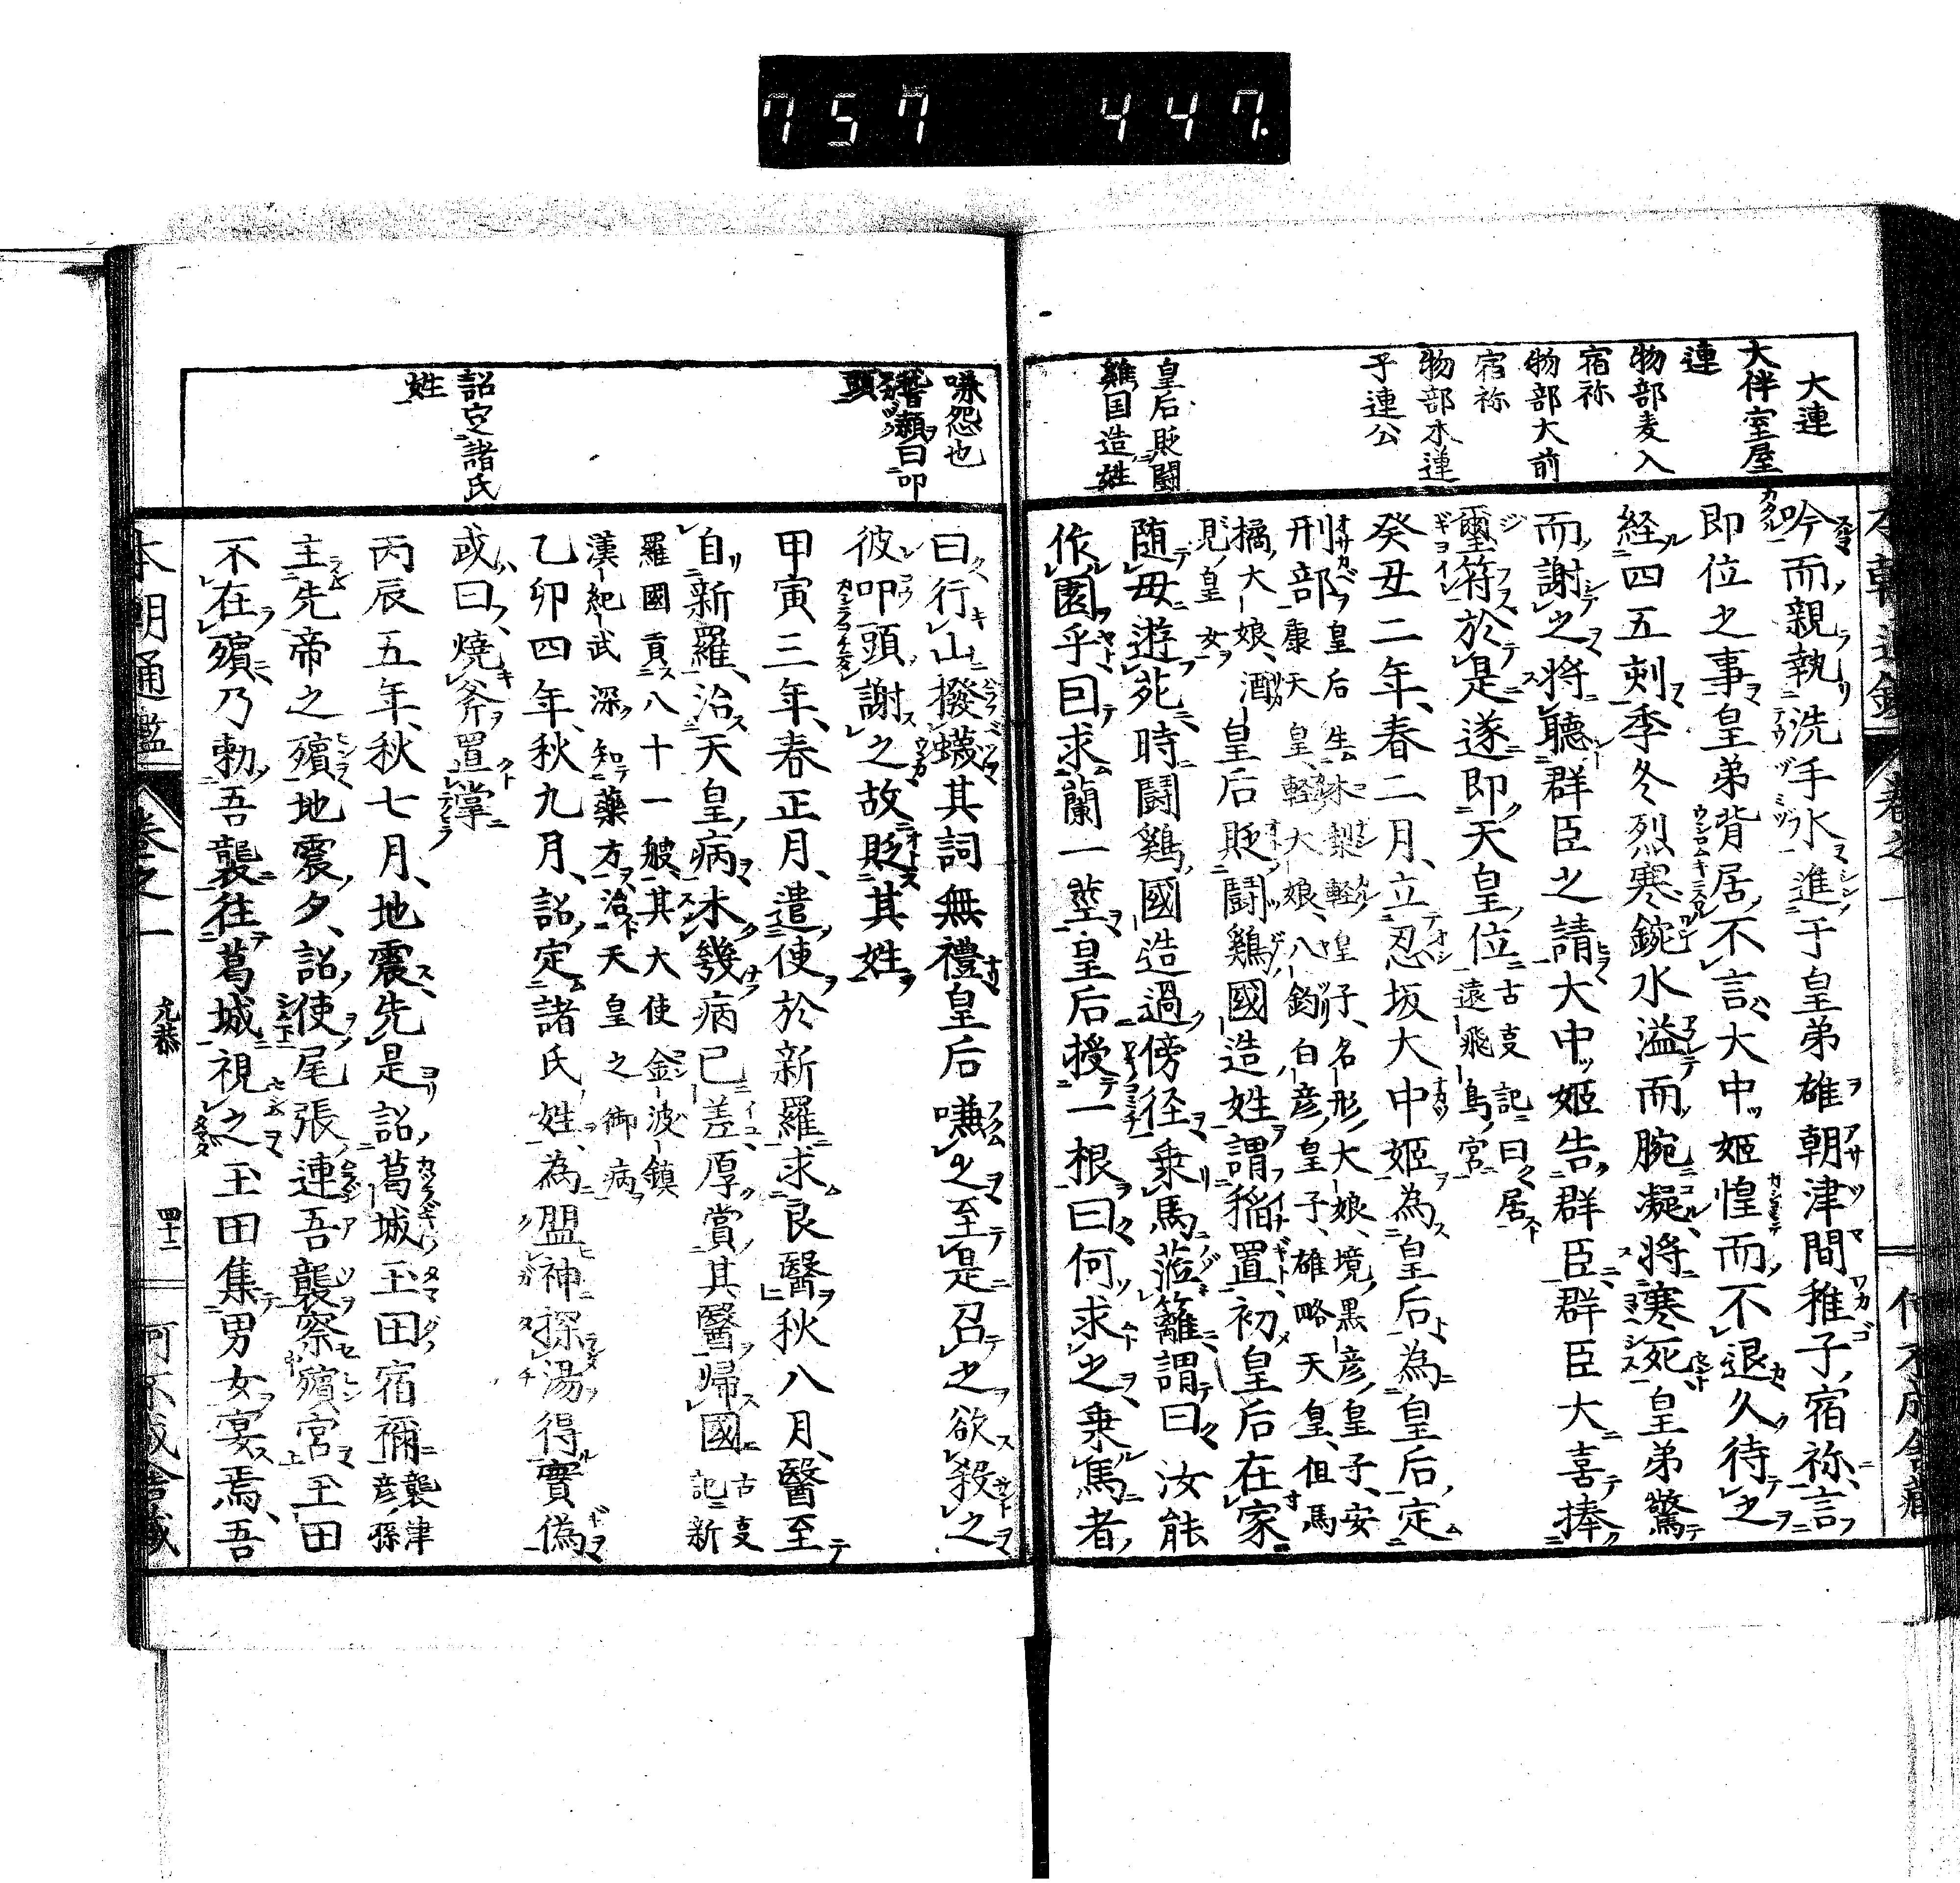 757 447.
大連
大伴室屋
連
物部麦入
宿祢
物部大前
宿祢
物部木連
子連公
皇后貶闘
雞国造姓
吟而親執洗手水進于皇弟雄朝津間稚子宿祢言
即位之事皇弟背居不言大中姬惶而不退久待之
経四五刻季冬烈寒鋺水溢而腕凝将寒死皇弟驚
而謝之将聽群臣之請大中姬告群臣群臣大喜捧
璽符於是遂即天皇位古事記曰居遠飛鳥宮
癸丑二年春二月立忍坂大中姬為皇后為皇后定
刑部皇后生木梨軽皇子名形大娘境黒彦皇子安
康天皇軽大娘八釣白彦皇子雄略天皇但馬
橘大娘酒
見皇女皇后貶闘鷄國造姓謂稲置初皇后在家
随毋遊苑時闘鷄國造過傍径乗馬莅籬謂曰汝能
作園乎曰求蘭一莖皇后授一根曰何求之乗馬者
嗛怨也
稽顙曰叩
頭
詔定諸氏
姓
曰行山撥蠛其詞無禮皇后嗛之至是召之欲殺之
彼叩頭謝之故貶其姓
甲寅三年春正月遣使於新羅求良醫秋八月醫至
自新羅治天皇病未幾病已差厚賞其醫歸國古事記新
羅國貢八十一艘其大使金波鎮
漢紀武深知藥方治天皇之御病
乙卯四年秋九月詔定諸氏姓為盟神探湯得實偽
或曰燒斧置掌
丙辰五年秋七月地震先是詔葛城玉田宿禰襲津彦孫
主先帝之殯地震夕詔使尾張連吾襲察殯宮玉田
不在殯乃勅吾襲往葛城視之玉田集男女宴焉吾
本朝通鑑 巻之一 允恭 四十二